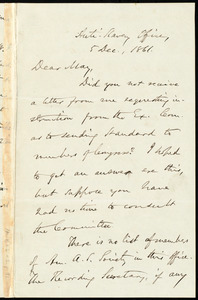 Anti-Slavery Office,
5 Dec., 1861.
Dear May,
Did you not receive
a letter from me requesting in-
struction from the Ex. Com
as to sending Standard to
members of Congress? I hoped
to get an answer ere this,
but suppose you have
had no time to consult
the Committee.
There is no list of members
of Am. A. S. Society in this Office.
The Recording Secretary, if any